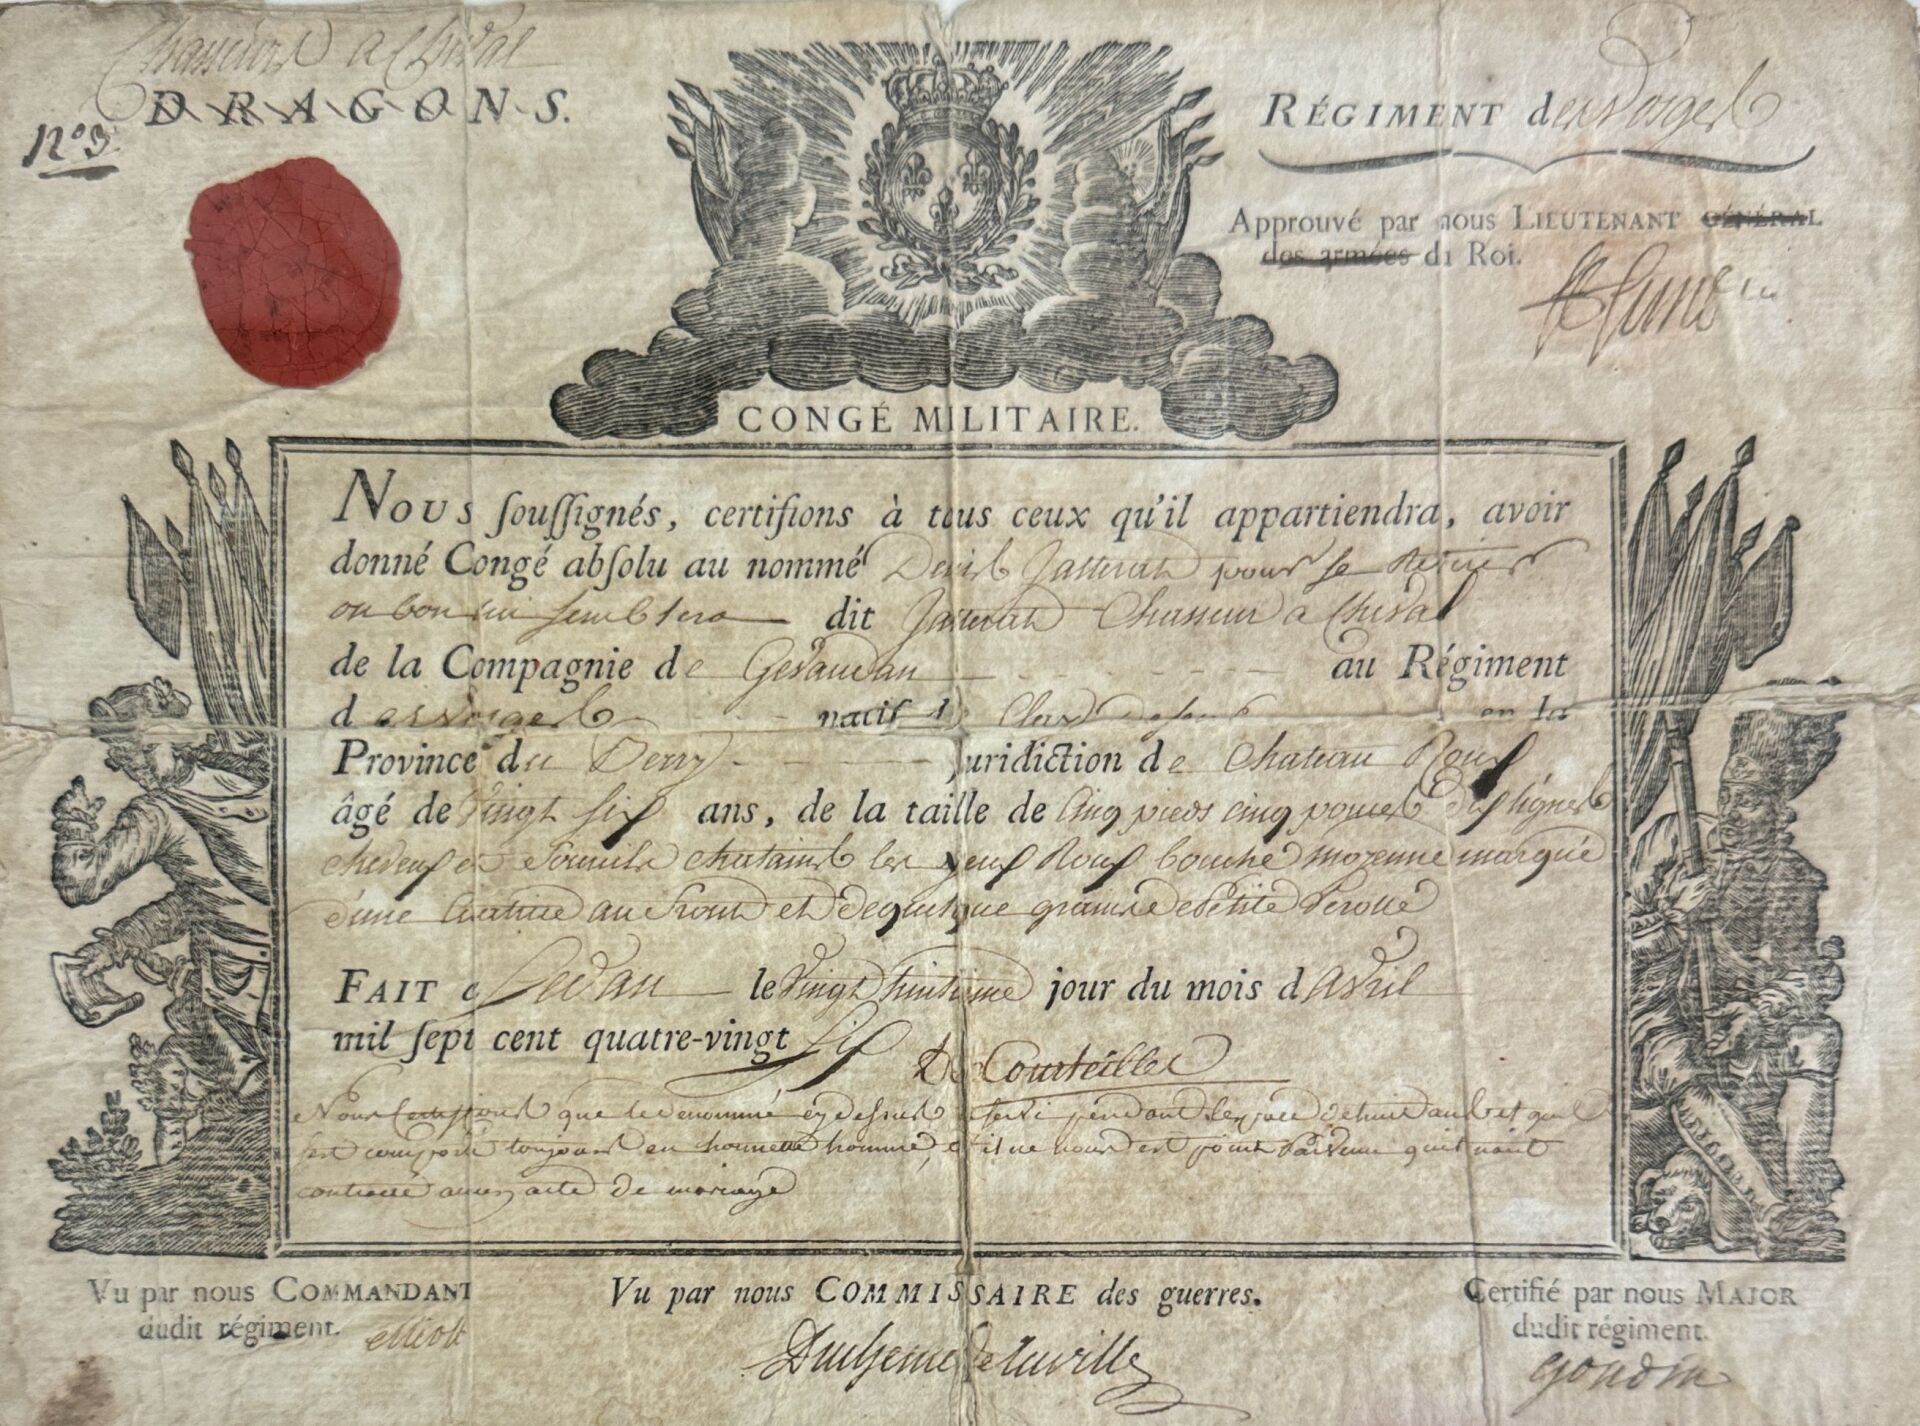 Chasseurs a Cheval
DRAGONS.
N° 3
RÉGIMENT des Vosges
Approuvé par nous LIEUTENANT GÉNÉRAL
des armées du Roi.
CONGÉ MILITAIRE.
Nous souſſignés, certifions à tous ceux qu'il appartiendra, avoir
donné Congé abſolu au nommé Denis Jasserat pour se retirer
ou bon lui semblera dit Jasserat Chasseur a Cheval
de la Compagnie de Gevaudan au Régiment
des Vosges natif de en la
Province du Berry Juridiction de Chateau Roux
âgé de Vingt six ans, de la taille de Cinq pieds cinq pouces six lignes
cheveux et Sourcils chatains les yeux Roux bouche moyenne marqué
d'une Cicatrice au front et de quelque grains de petite verolle
FAIT a Sedan le Vingt huitieme jour du mois d'Avril
mil ſept cent quatre-vingt Six De Courteilles
Nous Certifions que le denommé cy dessus a servi pendant l'espace de huit ans et qu'il
s'est comporté toujours en honnette homme, et il ne nous est point parvenu qu'il nait
contracté aucun acte de mariage
Vu par nous COMMANDANT
dudit régiment. elliott
Vu par nous COMMISSAIRE des guerres.
Duchesne de laville
Certifié par nous MAJOR
dudit régiment.
Goudin